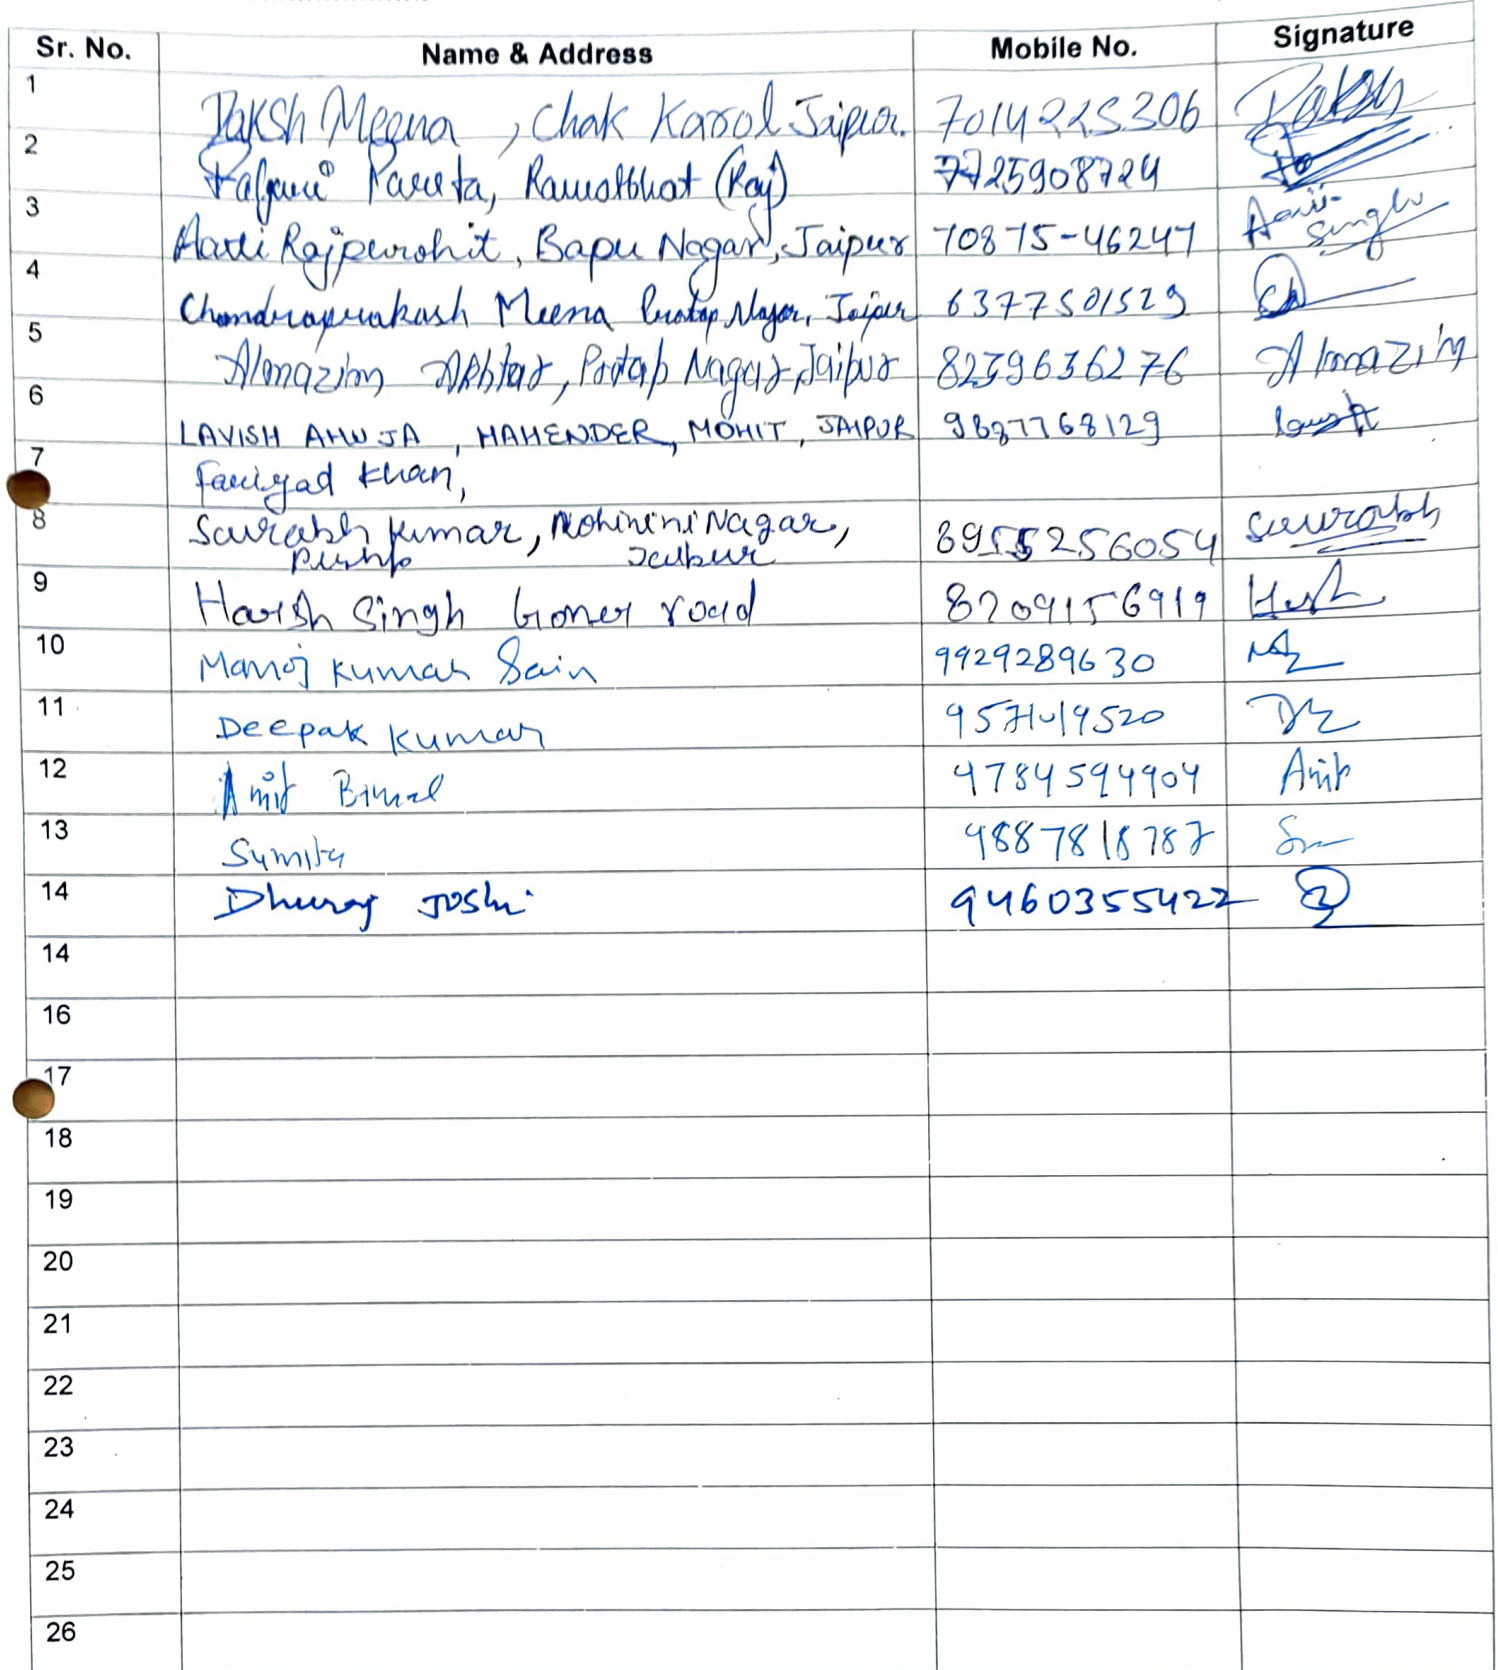 Sr. No. Name & Address Mobile No. Signature
1 Daksh Meena , Chak Karol Jaipur. 7014225306 Daksh
2 Pareta, Rawatbhat (Raj) 7725908724
3 Aarti Rajpurohit, Bapu Nagar, Jaipur 70875-46247 Aarti Singh
4 Chandraprakash Meena Pratap Nagar, Jaipur 6377501529
5 Almazim Akhtar, Pratap Nagar, Jaipur 8239636276 Almazim
6 LAVISH AHUJA , MAHENDER, MOHIT, JAIPUR 9887768129
7 Khan,
8 Saurabh Kumar, Nagar, 8955256054 Saurabh
9 Harsh Singh Goner road 8209156919 Harsh
10 Manoj Kumar Sain 9929289630
11 Deepak Kumar
12 Amit 9784594904 Amit
13 Sumita 9887818787
14 Joshi 9460355422
14
16
17
18
19
20
21
22
23
24
25
26